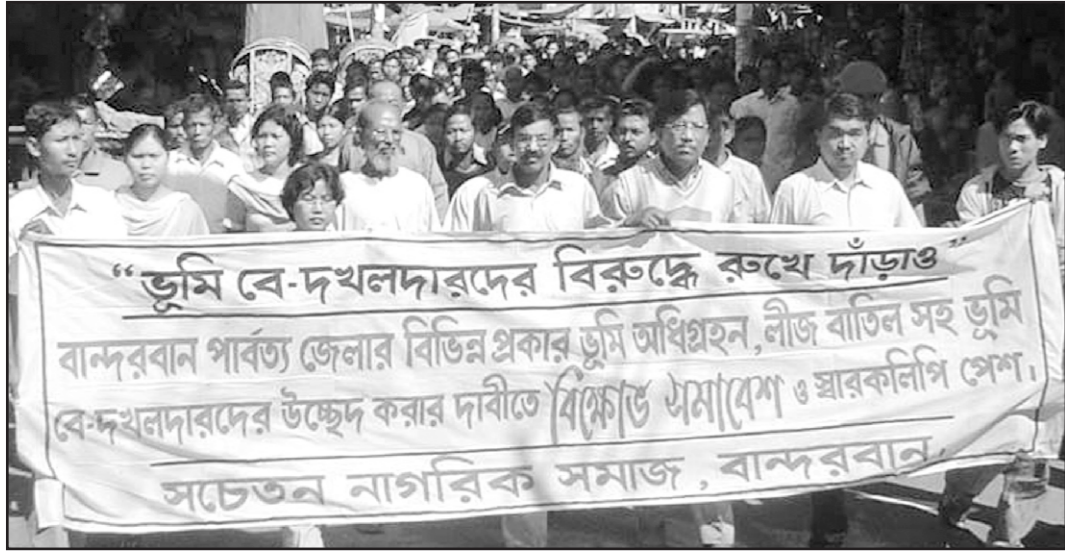 “ভূমি বে-দখলদারদের বিরুদ্ধে রুখে দাঁড়াও”
বান্দরবান পার্বত্য জেলার বিভিন্ন প্রকার ভূমি অধিগ্রহন, লীজ বাতিল সহ ভূমি
বে-দখলদারদের উচ্ছেদ করার দাবীতে বিক্ষোভ সমাবেশ ও স্বারকলিপি পেশ।
সচেতন নাগরিক সমাজ, বান্দরবান।